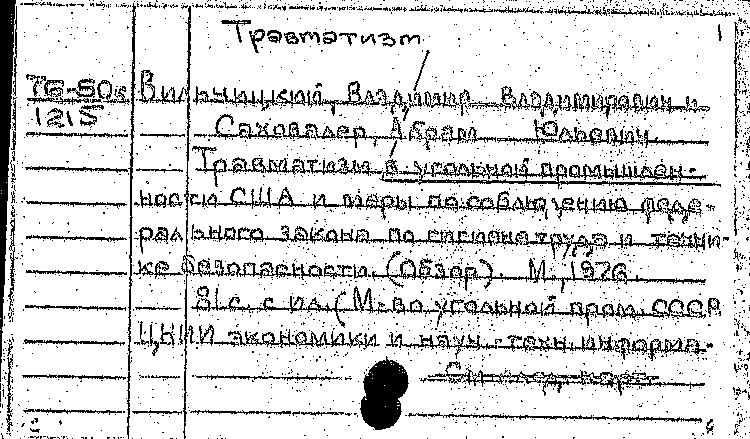 Травматизм 1
76-50к Вильчицкий, Владимир Владимирович и
1215 Саховалер, Абрам Юльевич
Травматизм в угольной промышлен-
ности США и меры по соблюдению феде-
рального закона по гигиене труда и техни-
ке безопасности. (Обзор). М., 1976.
81 с. с ил. (М-во угольной пром. СССР.
ЦНИИ экономики и науч.-техн. информа-
См. след. карт.